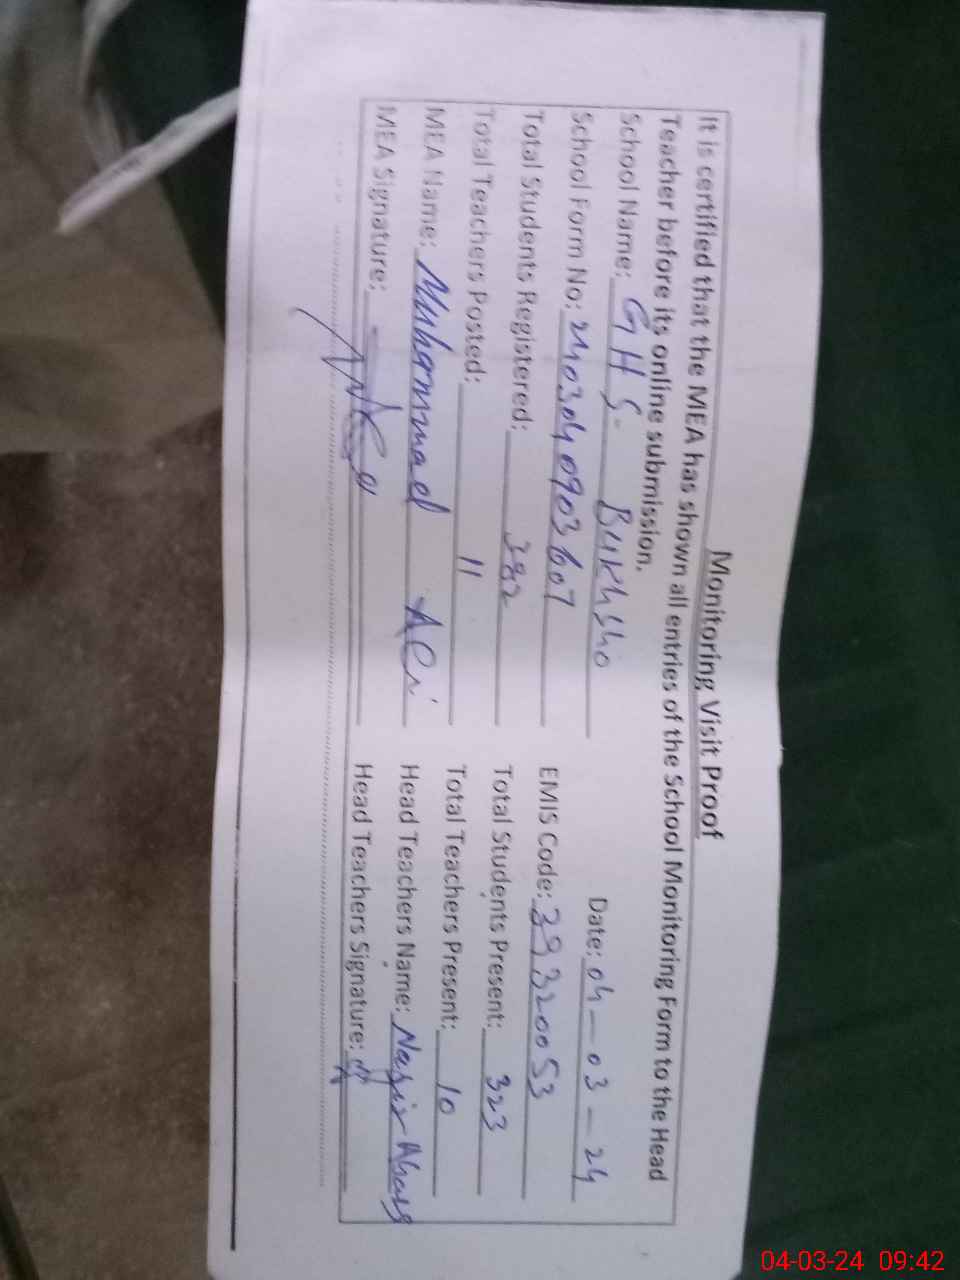 Monitoring Visit Proof
It is certified that the MEA has shown all entries of the School Monitoring Form to the Head
Teacher before its online submission.
Date: 04-03-24
School Name: GHS. Bukhsho
School Form No: 2403040903607 EMIS Code: 39320053
Total Students Registered: 382 Total Students Present: 323
Total Teachers Posted: 11 Total Teachers Present: 10
MEA Name: Muhammad Ali Head Teachers Name: Nasir Abass
MEA Signature: Head Teachers Signature:
04-03-24 09:42